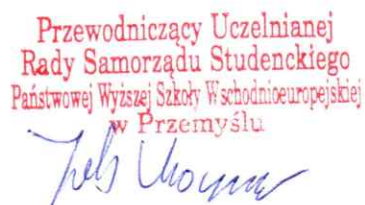 Przewodniczący Uczelnianej
Rady Samorządu Studenckiego
Państwowej Wyższej Szkoły Wschodnioeuropejskiej
w Przemyślu